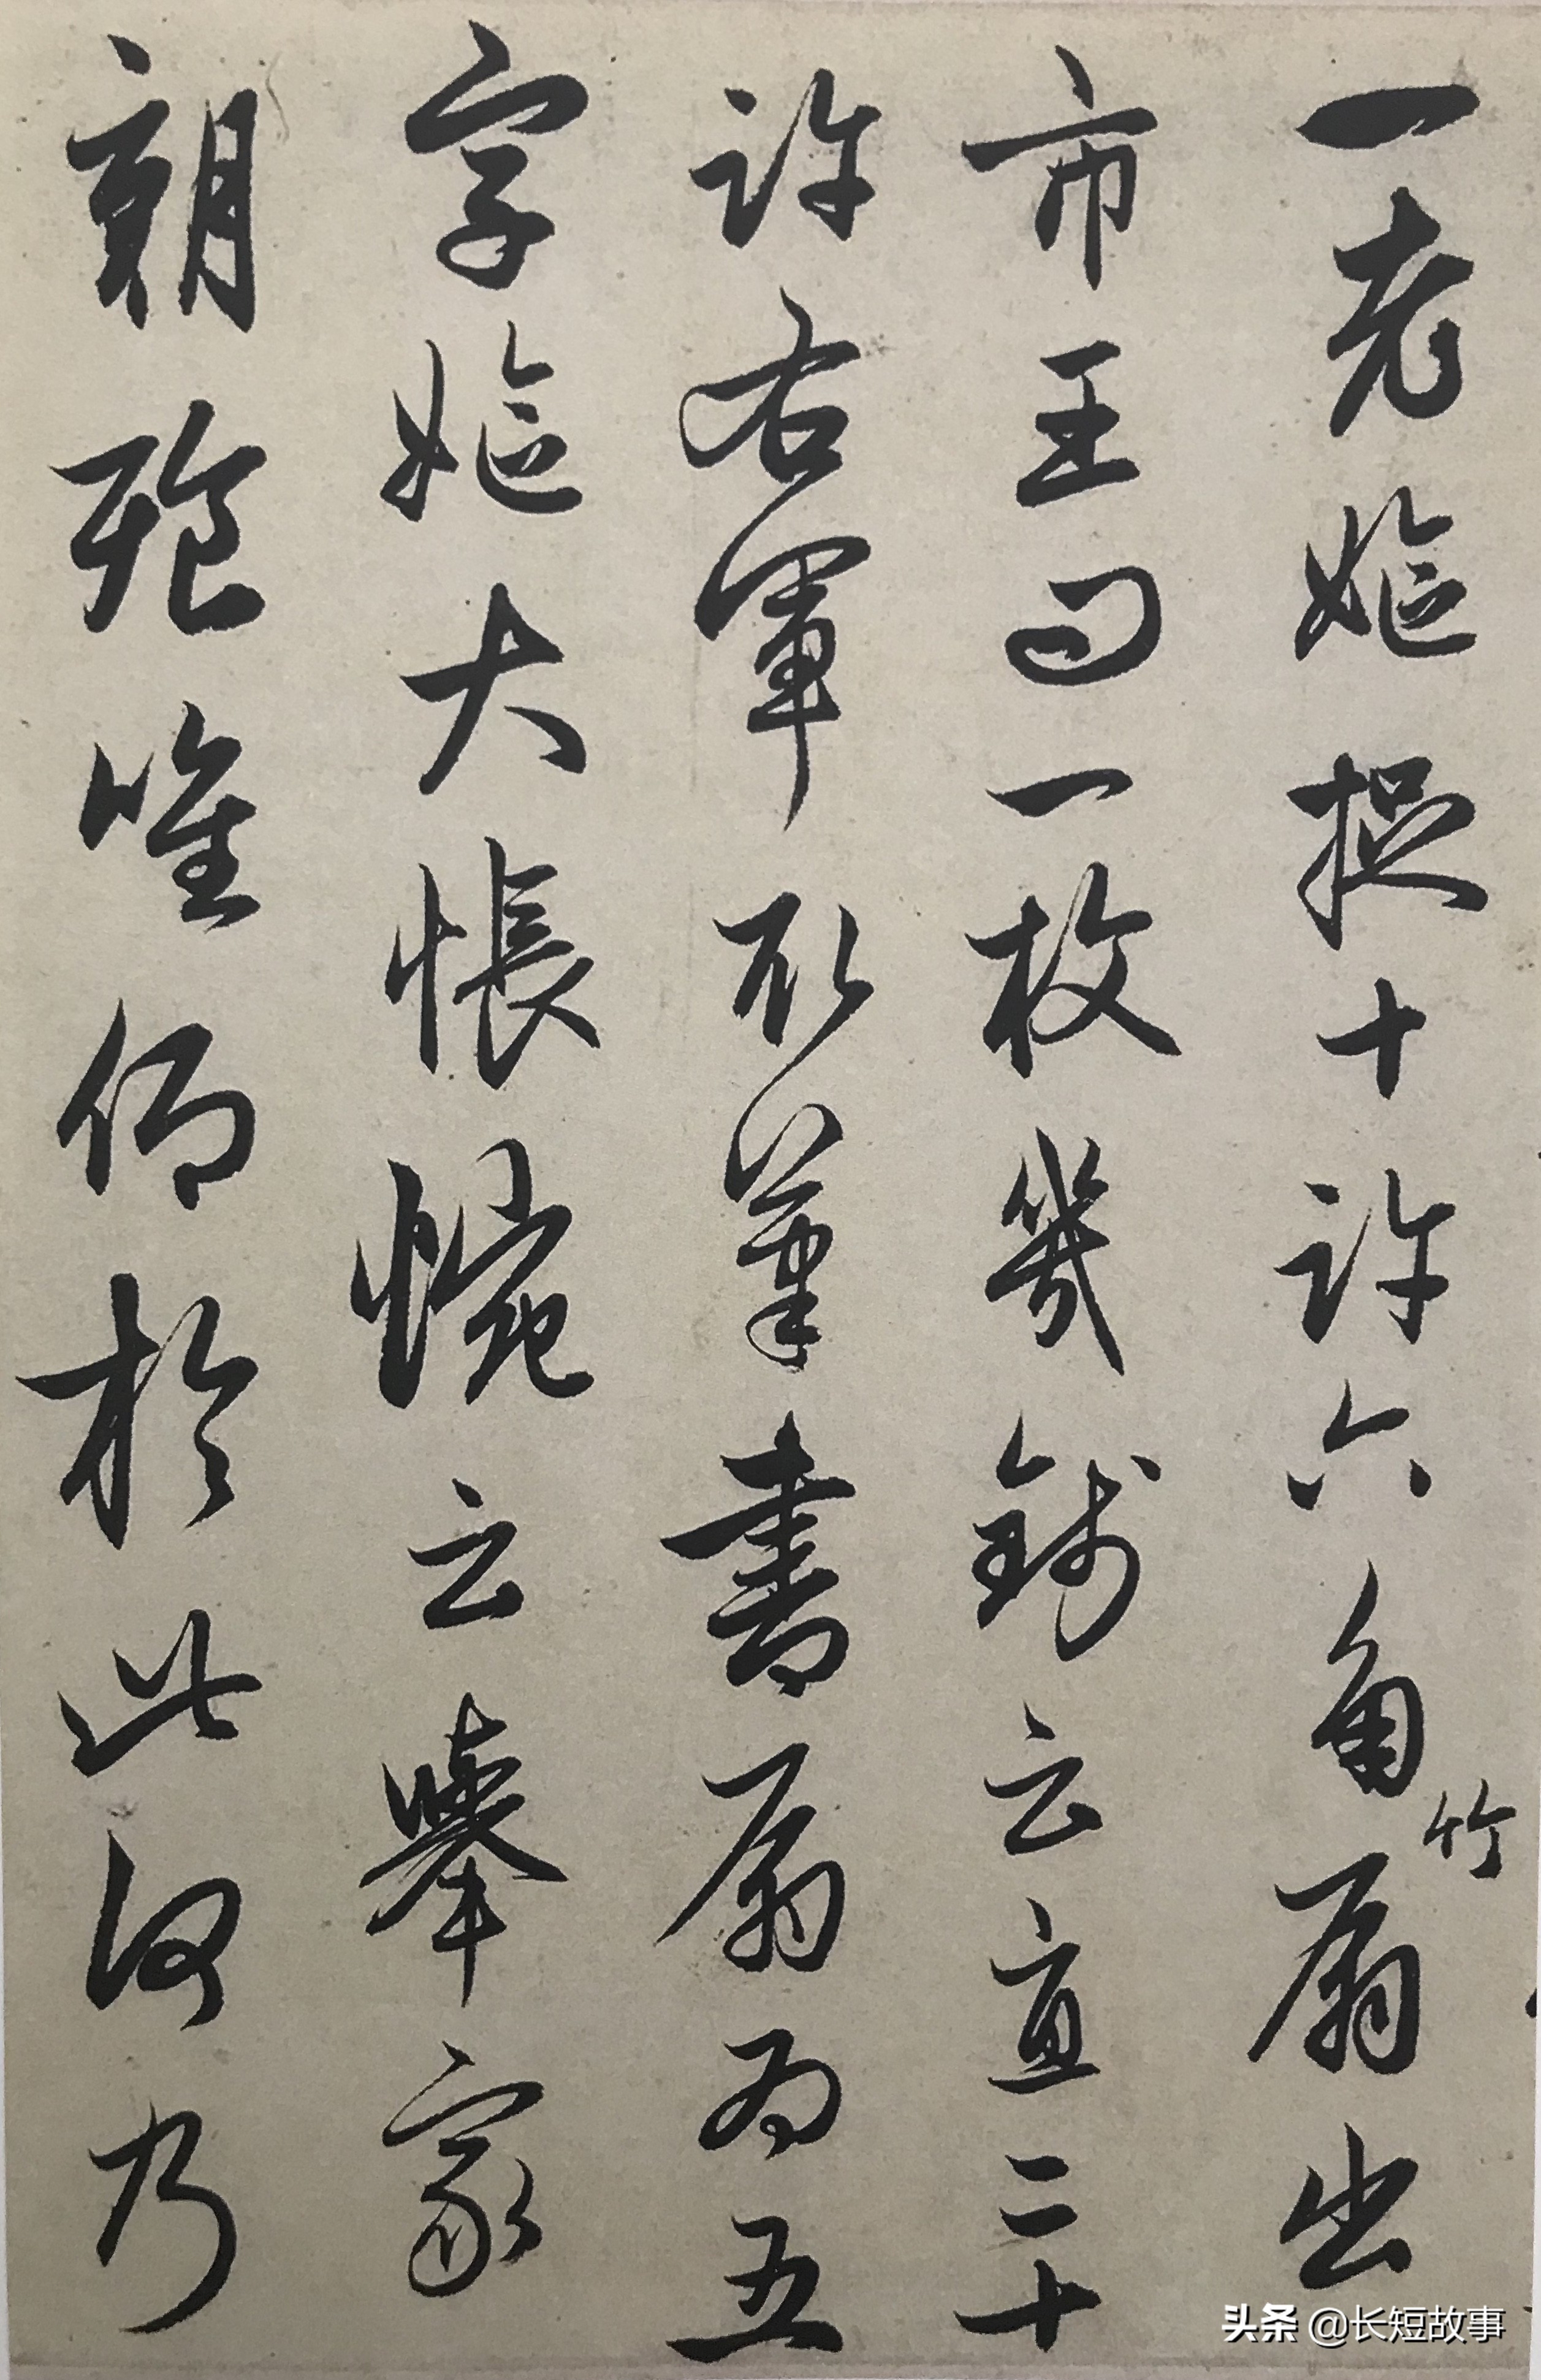 一老嫗捉十許六角竹扇出
市王問一枚幾錢云直二十
許右軍取筆書扇為五
字嫗大悵惋云舉家
朝飧唯仰於此何乃
头条 @长短故事